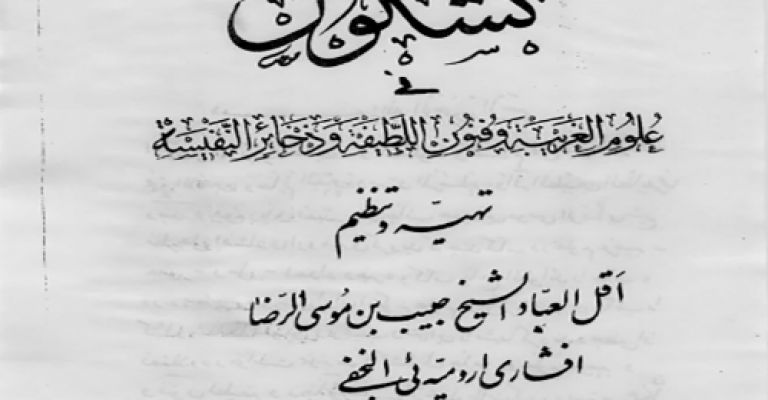 کشکول
في
علوم الغريبة وفنون اللطيفة وذخائر النفيسة
تهیه و تنظیم
اقل العباد الشیخ حبیب بن موسی الرضا
افشاری ارومیه ئی النجفی